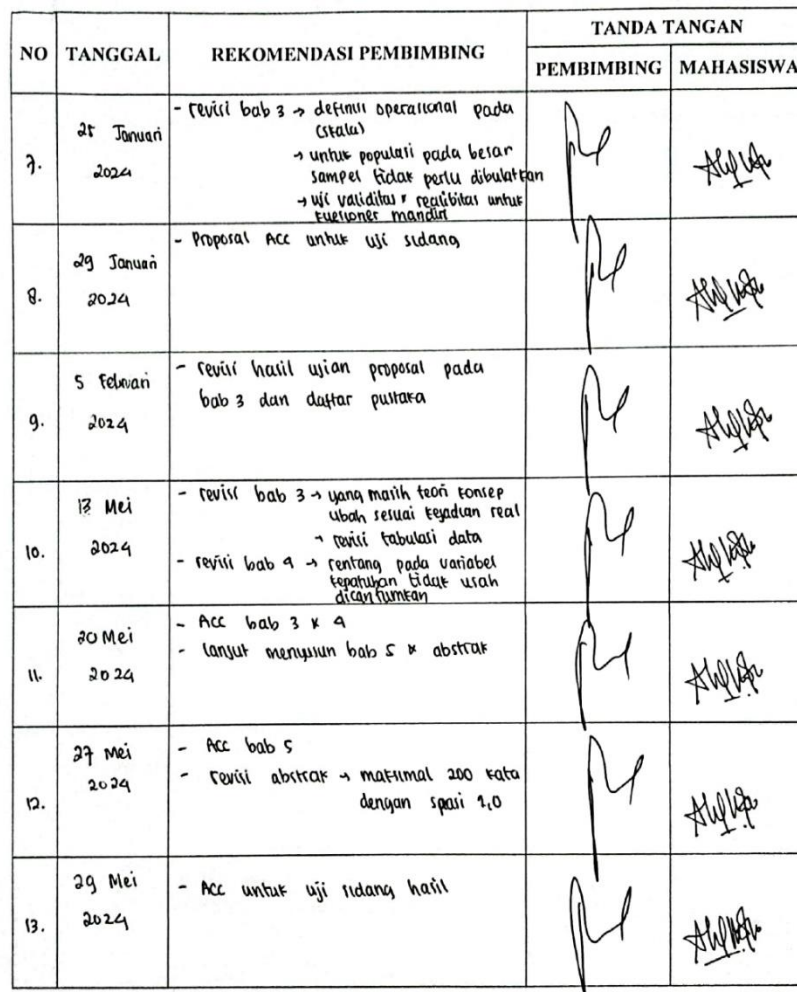 NO TANGGAL REKOMENDASI PEMBIMBING TANDA TANGAN
PEMBIMBING MAHASISWA
7. 25 Januari 2024
- revisi bab 3 → definisi operasional pada
(skala)
→ untuk populasi pada besar
sampel tidak perlu dibulatkan
→ uji validitas & realibitas untuk
kuesioner mandiri
8. 29 Januari 2024
- Proposal Acc untuk uji sidang
9. 5 Februari 2024
- revisi hasil ujian proposal pada
bab 3 dan daftar pustaka
10. 13 Mei 2024
- revisi bab 3 → yang masih teori konsep
ubah sesuai kejadian real
→ revisi tabulasi data
- revisi bab 4 → rentang pada variabel
kepatuhan tidak usah
dicantumkan
11. 20 Mei 2024
- Acc bab 3 & 4
- lanjut menyusun bab 5 & abstrak
12. 27 Mei 2024
- Acc bab 5
- revisi abstrak → maksimal 200 kata
dengan spasi 1,0
13. 29 Mei 2024
- Acc untuk uji sidang hasil